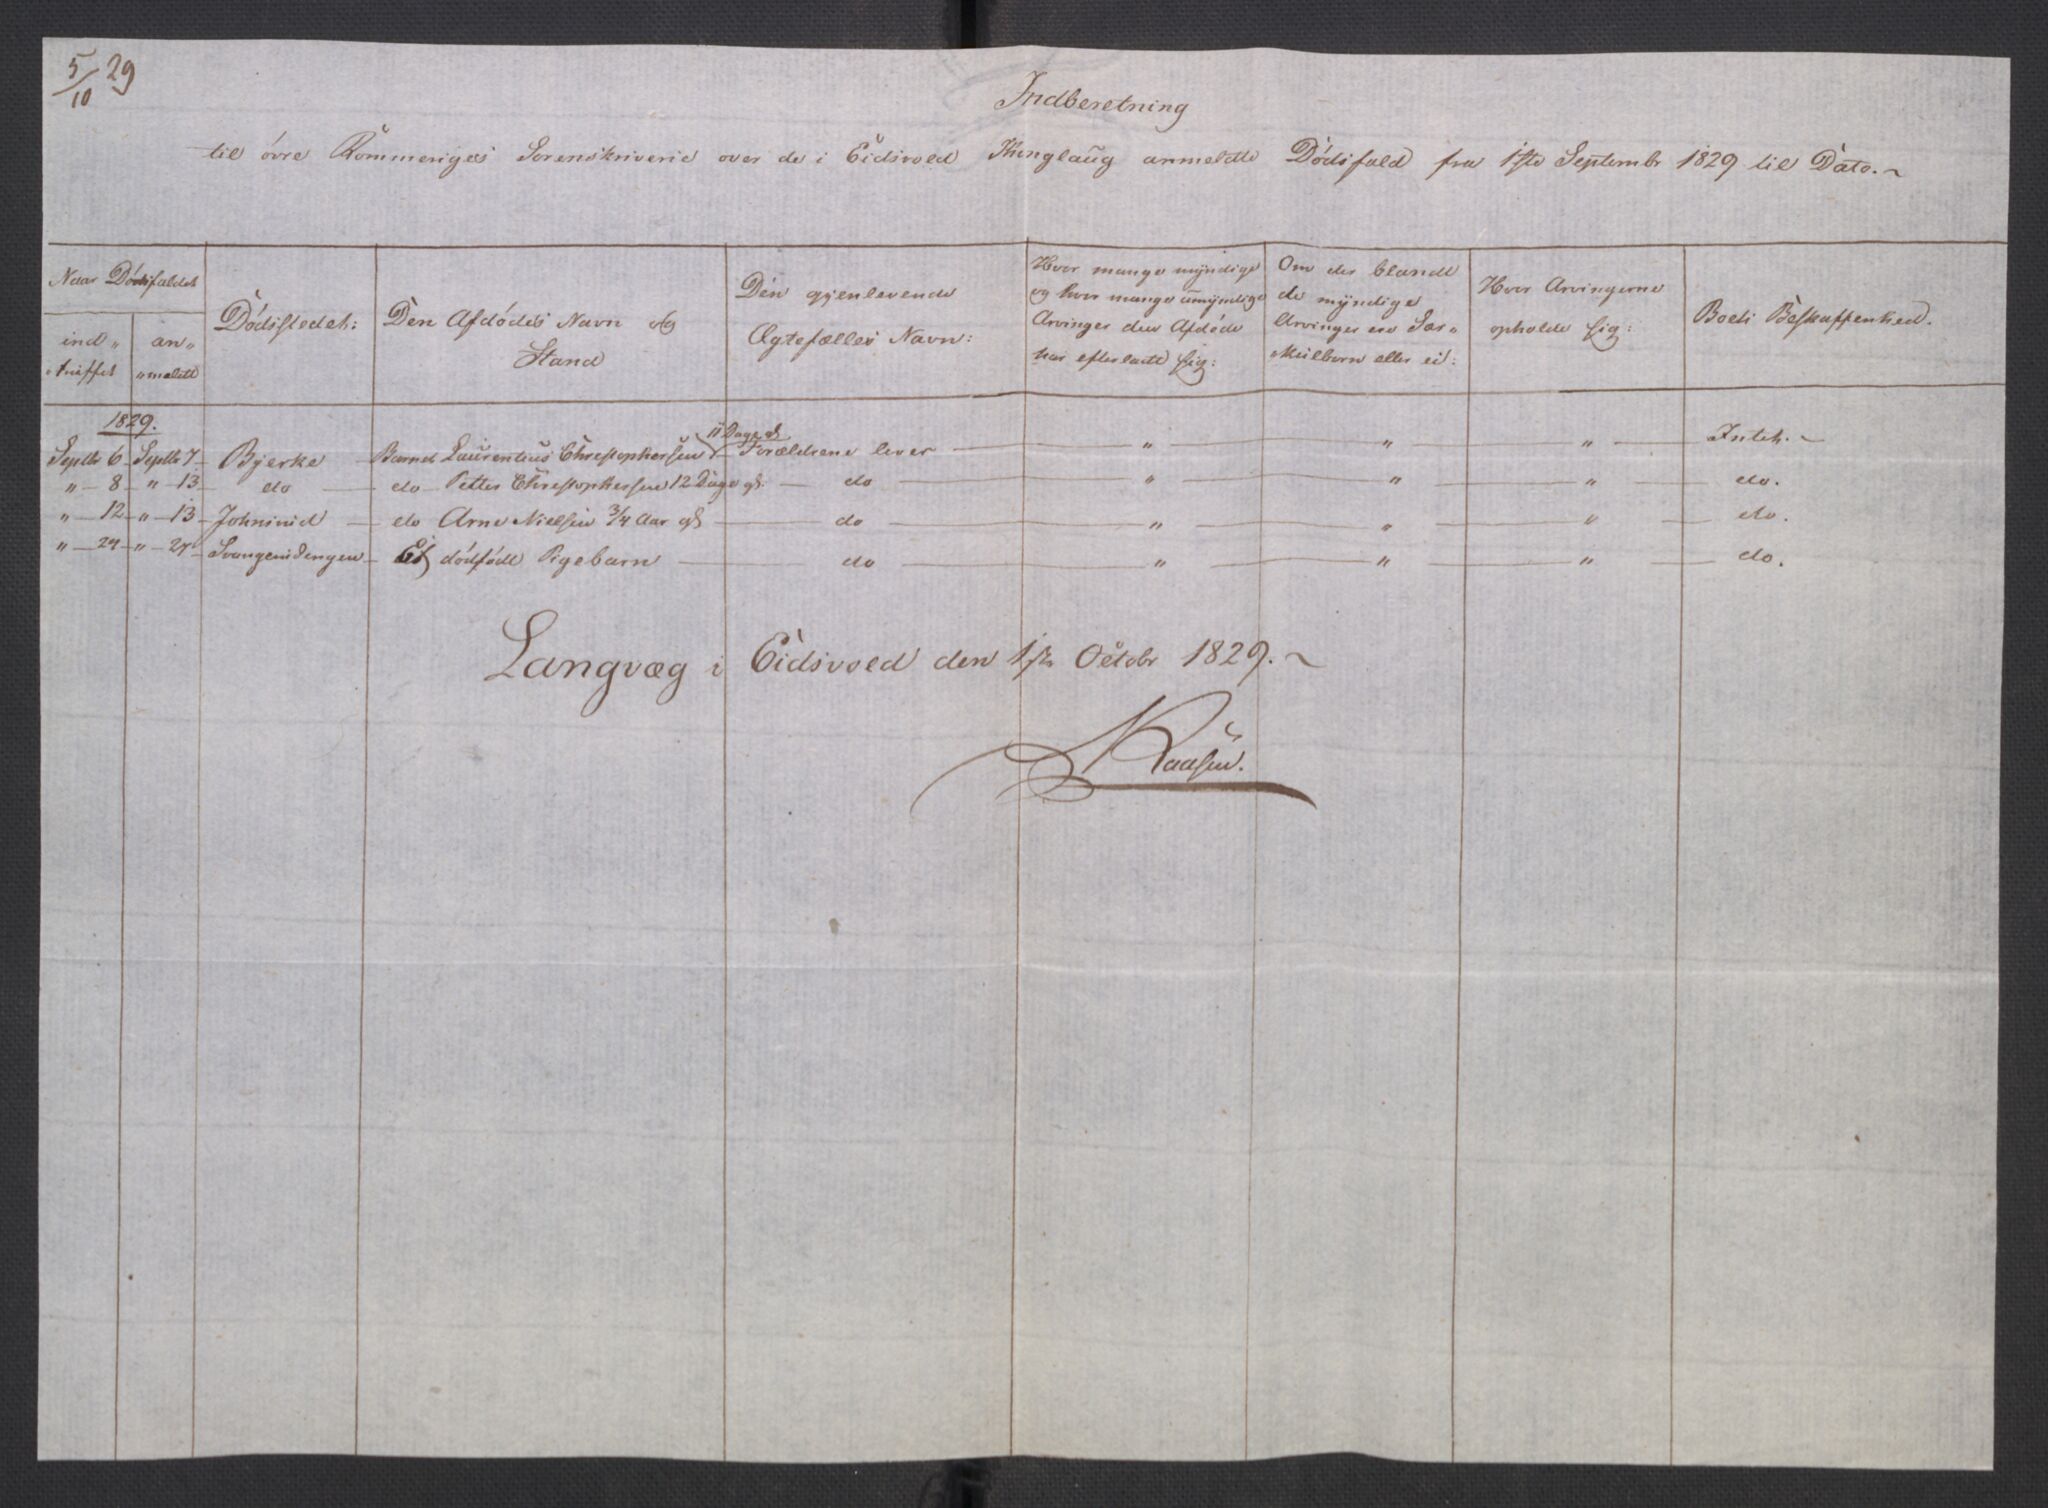 5/10 29
Indberetning
til övre Rommeriges Sorenskriverie over de i Eidsvold Thinglaug anmeldte Dödsfald fra 1ste Septembr 1829 til Dato.
Naar Dödsfaldet
ind„
„truffet
an„
„meldt
Dödsstedet:
Den Afdödes Navn og
Stand
Den gjenlevende
Ægtefælles Navn:
Hvor mange myndige
og hvor mange umyndige
Arvinger den Afdöde
har efterladt sig:
Om der blandt
de myndige
Arvinger ere Sær„
„kuilborn eller ei:
Hvor Arvingerne
opholde sig:
Boets Beskaffenhed.
1829.
Septbr 6 Septbr 7 Bjerke Barnet Laurentius Christophersen 11 Dage gl. Forældrene lever „ „ „ Intet.
„ 8 „ 13 do do Petter Christophersen 12 Dage gl. do „ „ „ do.
„ 12 „ 13 do Arne Nielsen 3/4 Aar gl do „ „ „ do.
„ 24 „ 27 Et dödfödt Pigebarn do „ „ „ do.
Langvæg i Eidsvold den 1ste Octobr 1829.